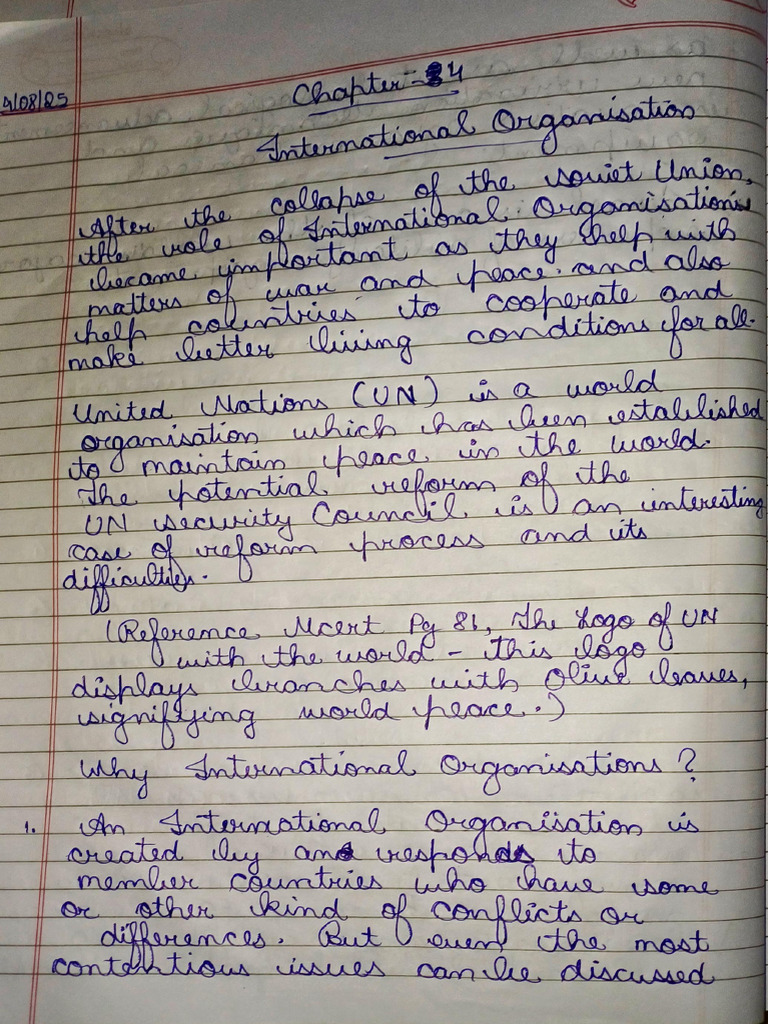 4/08/25
Chapter - 4
International Organisation
After the collapse of the Soviet Union,
the role of International Organisations
became important as they help with
matters of war and peace. and also
help countries to cooperate and
make better living conditions for all.
United Nations (UN) is a world
organisation which has been established
to maintain peace in the world.
The potential reform of the
UN security Council is an interesting
case of reform process and its
difficulties.
(Reference Ncert Pg 81, The Logo of UN
with the world - this logo
displays branches with Olive leaves,
signifying world peace.)
Why International Organisations?
1. An International Organisation is
created by and responds to
member countries who have some
or other kind of conflicts or
differences. But even the most
contentious issues can be discussed